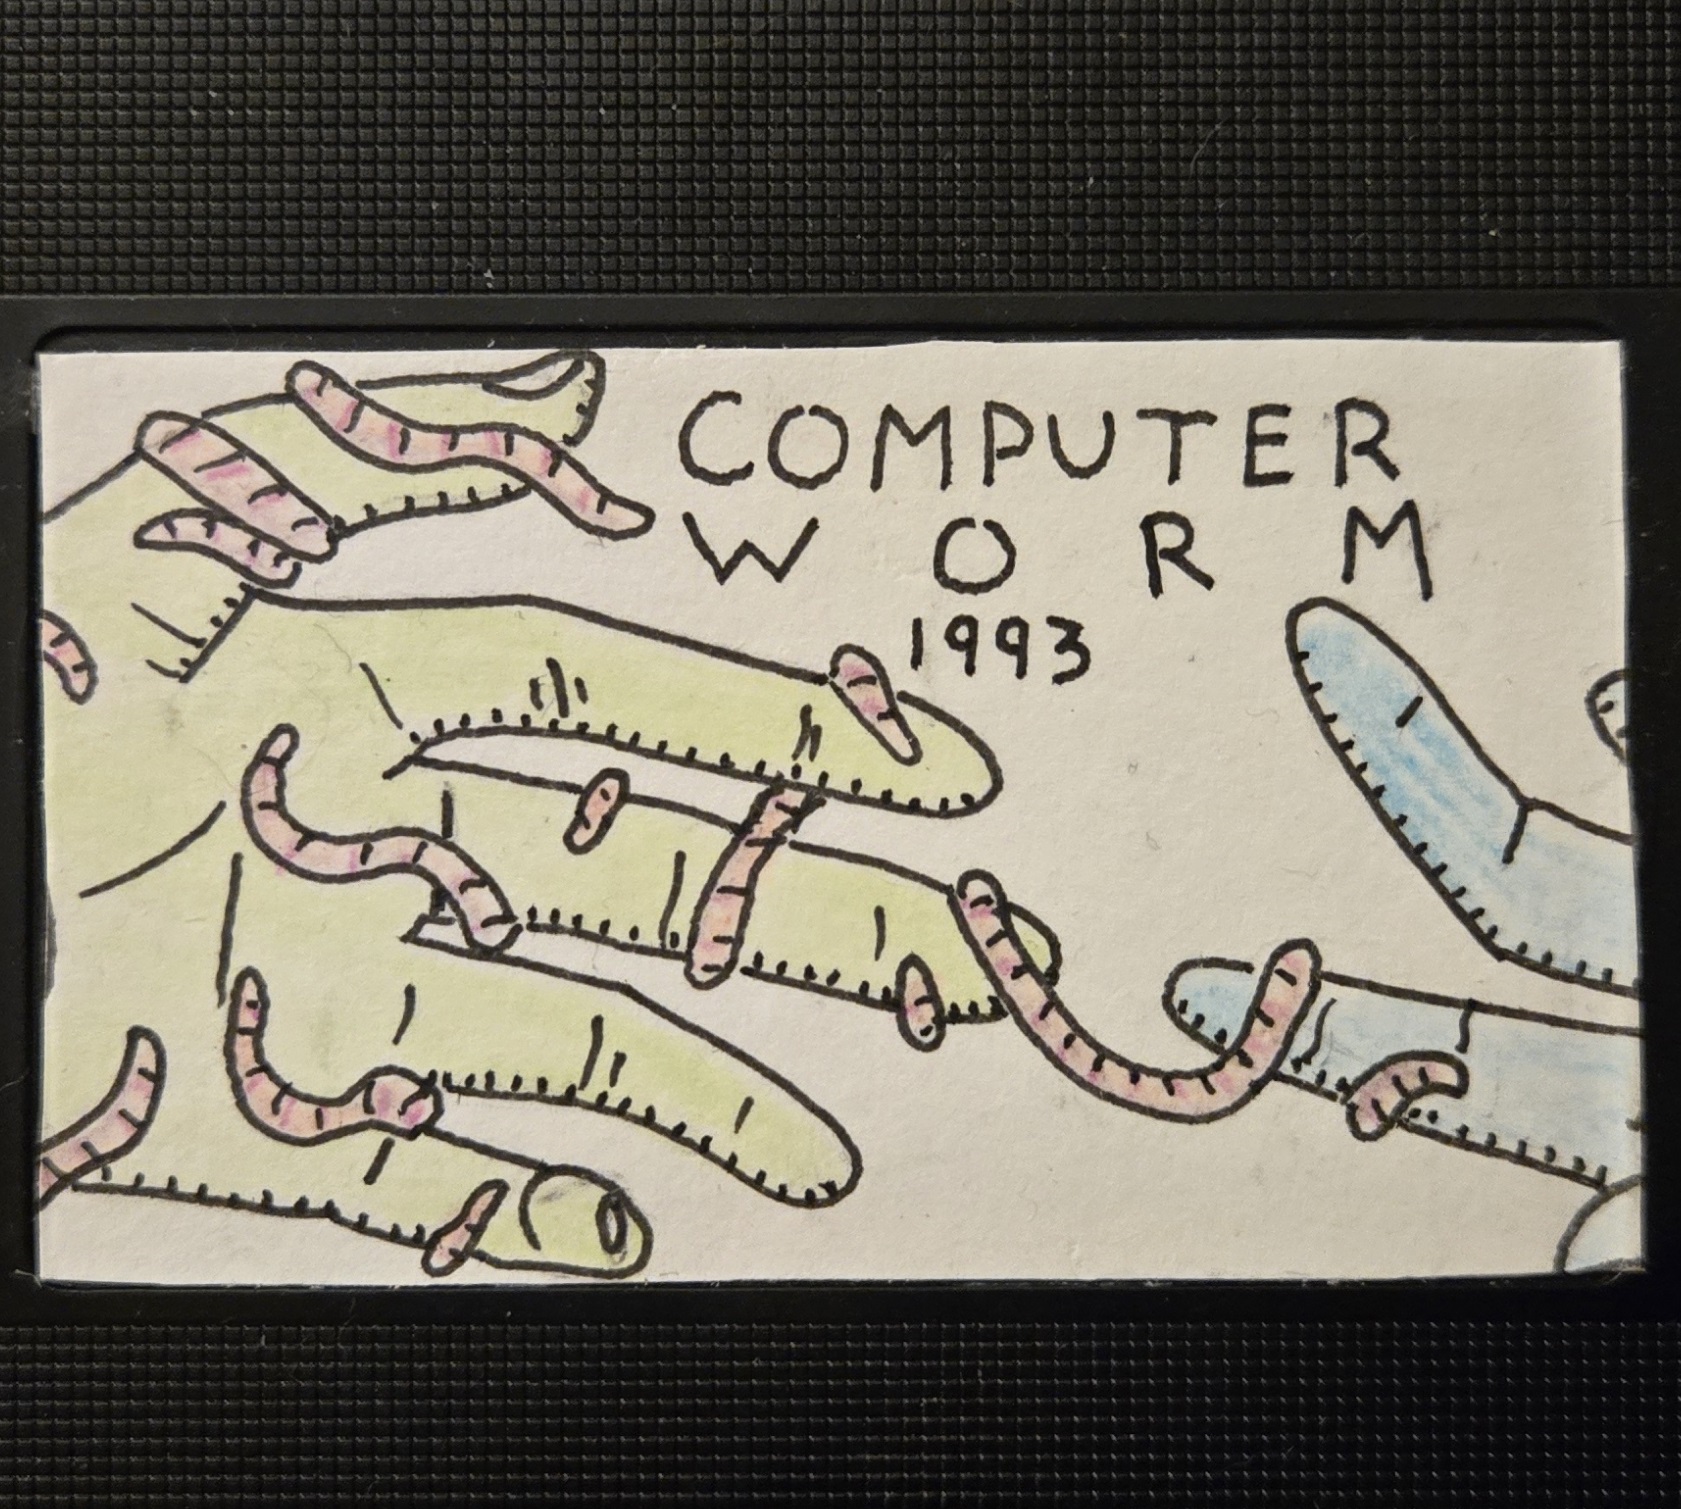 COMPUTER
WORM
1993